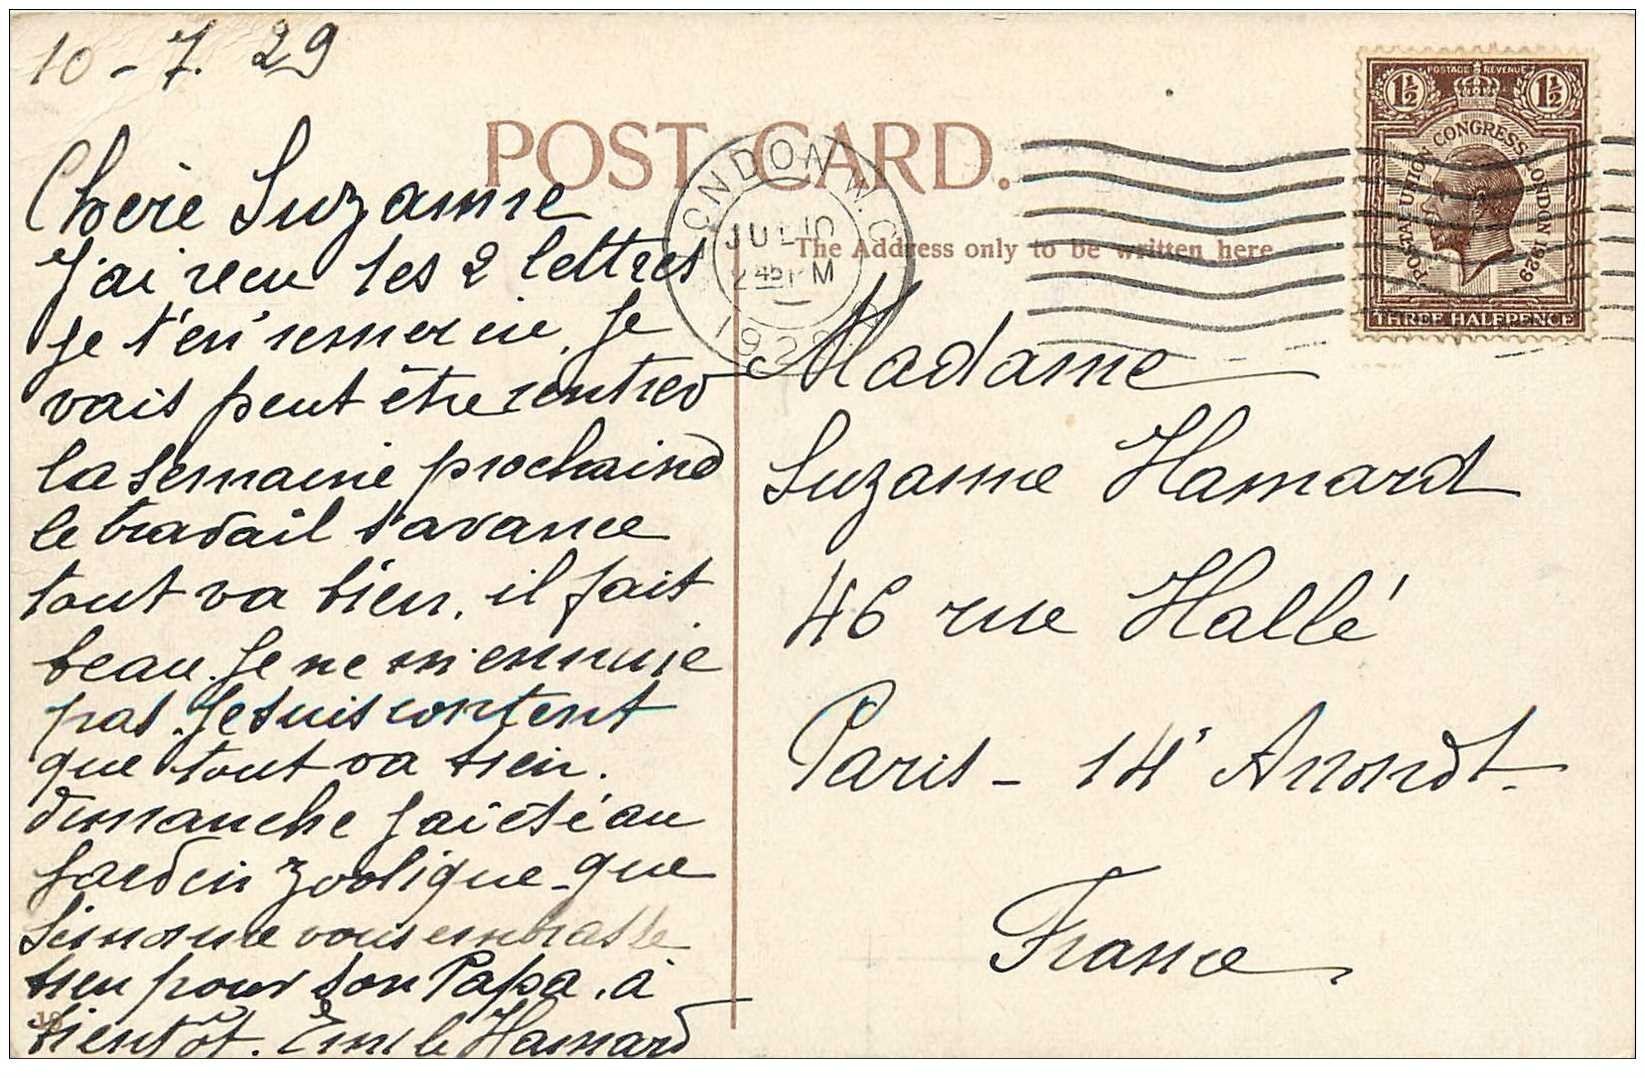 10 - 7. 29
POST CARD.
The Address only to be written here
LONDON W.C.
JUL 10
2 45 PM
1929
POSTAGE REVENUE
1½ 1½
POSTAL UNION CONGRESS LONDON 1929
THREE HALFPENCE
Chère Suzanne
J'ai reçu tes 2 lettres
je t'en remercie. Je
vais peut être rentrer
la semaine prochaine
le travail s'avance
tout va bien. il fait
beau. Je ne m'ennuie
pas. Je suis content
que tout va bien.
dimanche j'ai été au
Jardin zoologique - que
Simonne vous embrasse
bien pour son Papa. à
bientôt. Emile Hamard
10
Madame
Suzanne Hamard
46 rue Hallé
Paris - 14e Arrondt.
France